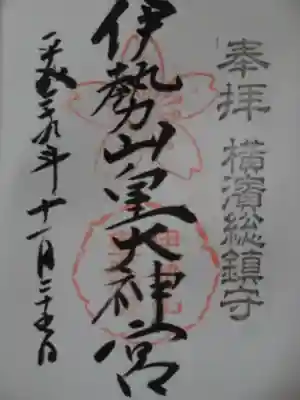 奉拝 横濱総鎮守
伊勢山皇大神宮
平成二九年十一月二十五日